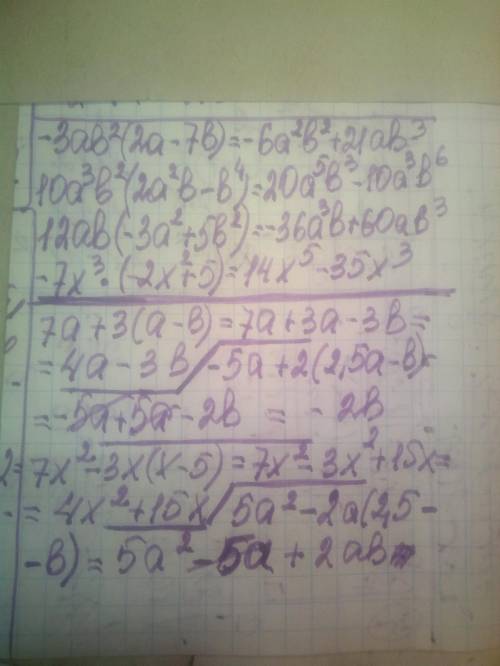 -3ab²(2a-7b)=-6a²b²+21ab³
10a³b²(2a²b-b⁴)=20a⁵b³-10a³b⁶
12ab(-3a²+5b²)=-36a³b+60ab³
-7x³·(-2x²+5)=14x⁵-35x³
7a+3(a-b)=7a+3a-3b=
=4a-3b/-5a+2(2,5a-b)=
=-5a+5a-2b = -2b
7x²-3x(x-5)=7x²-3x²+15x=
=4x²+15x/5a²-2a(2,5-
-b)=5a²-5a+2ab